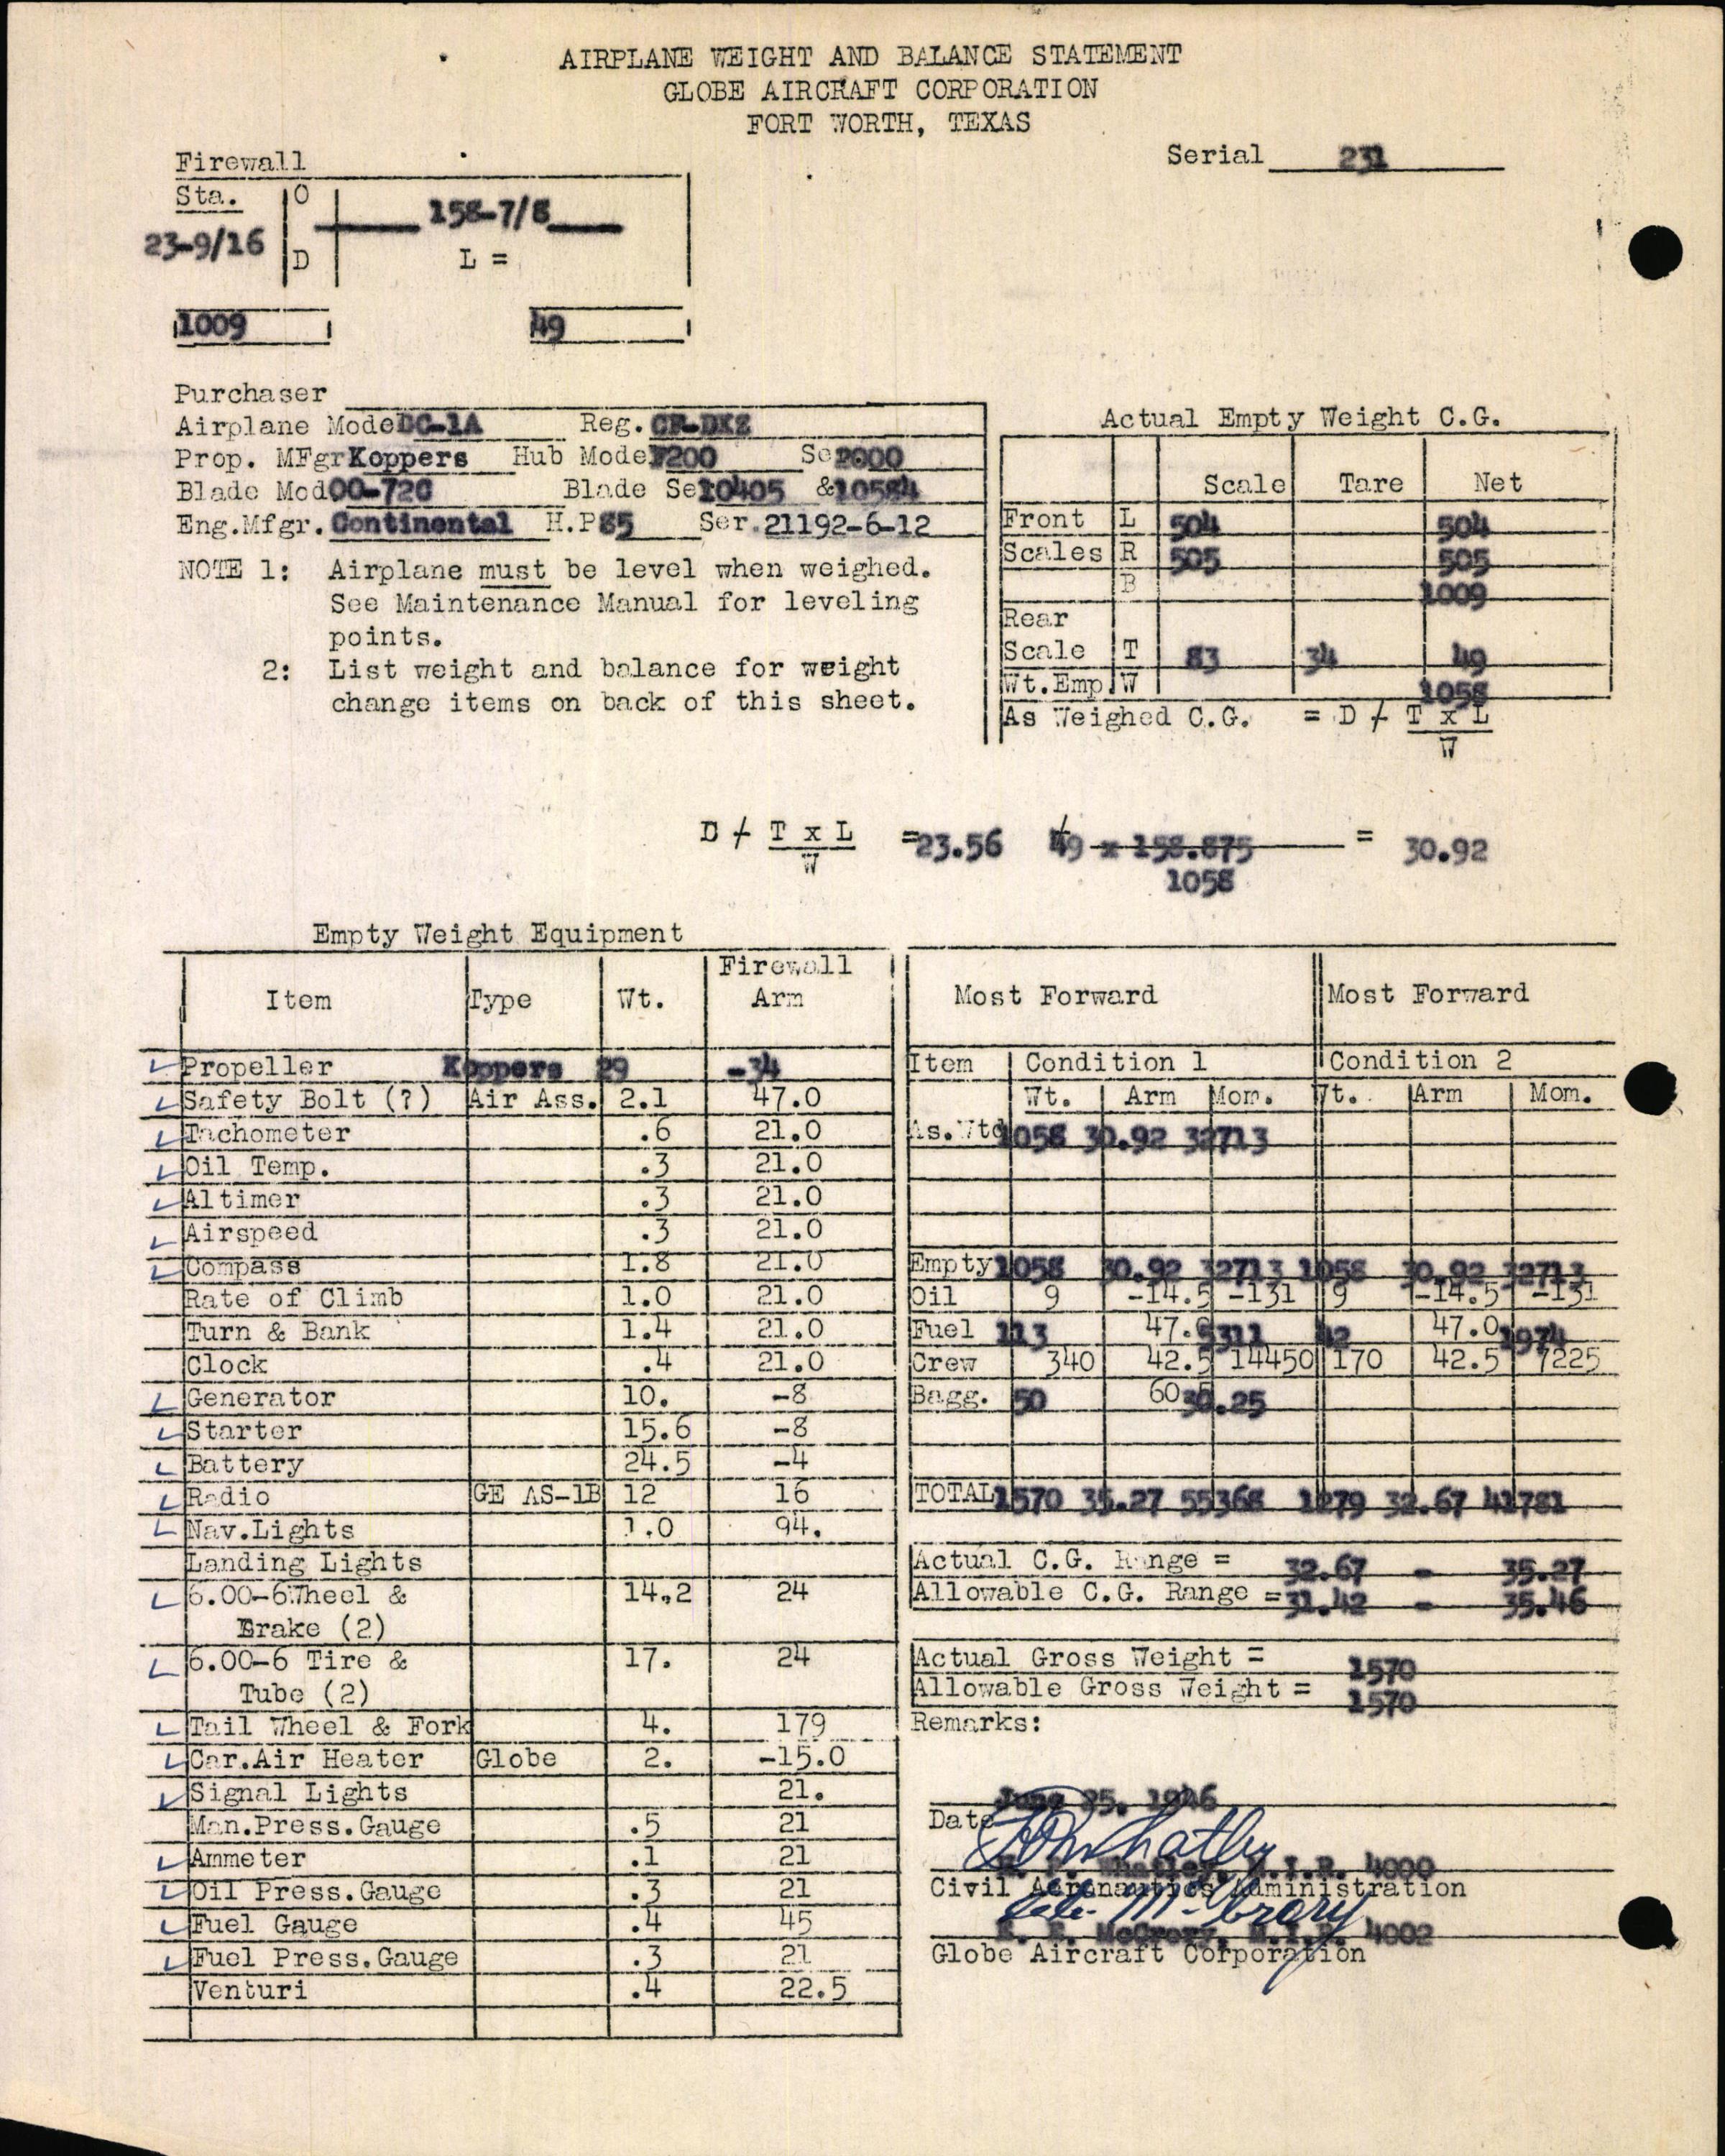 AIRPLANE WEIGHT AND BALANCE STATEMENT
GLOBE AIRCRAFT CORPORATION
FORT WORTH, TEXAS
Serial 231
Firewall
Sta. O
158-7/8
23-9/16
D L =
1009 49
Purchaser
Airplane Mode GC-1A Reg. CF-DKZ
Prop. MFgr Koppers Hub Mode F200 Se 2000
Blade Mod 00-72C Blade Se 10405 & 10584
Eng.Mfgr. Continental H.P 85 Ser. 21192-6-12
NOTE 1: Airplane must be level when weighed.
See Maintenance Manual for leveling
points.
2: List weight and balance for weight
change items on back of this sheet.
Actual Empty Weight C.G.
Scale Tare Net
Front L 504 504
Scales R 505 505
B 1009
Rear
Scale T 83 34 49
Wt.Emp. W 1058
As Weighed C.G. = D + T x L
W
D + T x L = 23.56 + 49 x 158.875 = 30.92
W 1058
Empty Weight Equipment
Item Type Wt. Firewall Arm
Propeller Koppers 29 -34
Safety Bolt (?) Air Ass. 2.1 47.0
Tachometer .6 21.0
Oil Temp. .3 21.0
Altimer .3 21.0
Airspeed .3 21.0
Compass 1.8 21.0
Rate of Climb 1.0 21.0
Turn & Bank 1.4 21.0
Clock .4 21.0
Generator 10. -8
Starter 15.6 -8
Battery 24.5 -4
Radio GE AS-1B 12 16
Nav.Lights 1.0 94.
Landing Lights
6.00-6Wheel & 14.2 24
Brake (2)
6.00-6 Tire & 17. 24
Tube (2)
Tail Wheel & Fork 4. 179
Car.Air Heater Globe 2. -15.0
Signal Lights 21.
Man.Press.Gauge .5 21
Ammeter .1 21
Oil Press.Gauge .3 21
Fuel Gauge .4 45
Fuel Press.Gauge .3 21
Venturi .4 22.5
Most Forward Most Forward
Item Condition 1 Condition 2
Wt. Arm Mom. Wt. Arm Mom.
As.Wtd 1058 30.92 32713
Empty 1058 30.92 32713 1058 30.92 32713
Oil 9 -14.5 -131 9 -14.5 -131
Fuel 113 47.0 5311 42 47.0 1974
Crew 340 42.5 14450 170 42.5 7225
Bagg. 50 60.5 30.25
TOTAL 1570 35.27 55368 1279 32.67 41781
Actual C.G. Range = 32.67 - 35.27
Allowable C.G. Range = 31.42 - 35.46
Actual Gross Weight = 1570
Allowable Gross Weight = 1570
Remarks:
June 25, 1946
Date
Whatley, M.I.R. 4000
Civil Aeronautics Administration
E. E. McCrory, M.I.R. 4002
Globe Aircraft Corporation